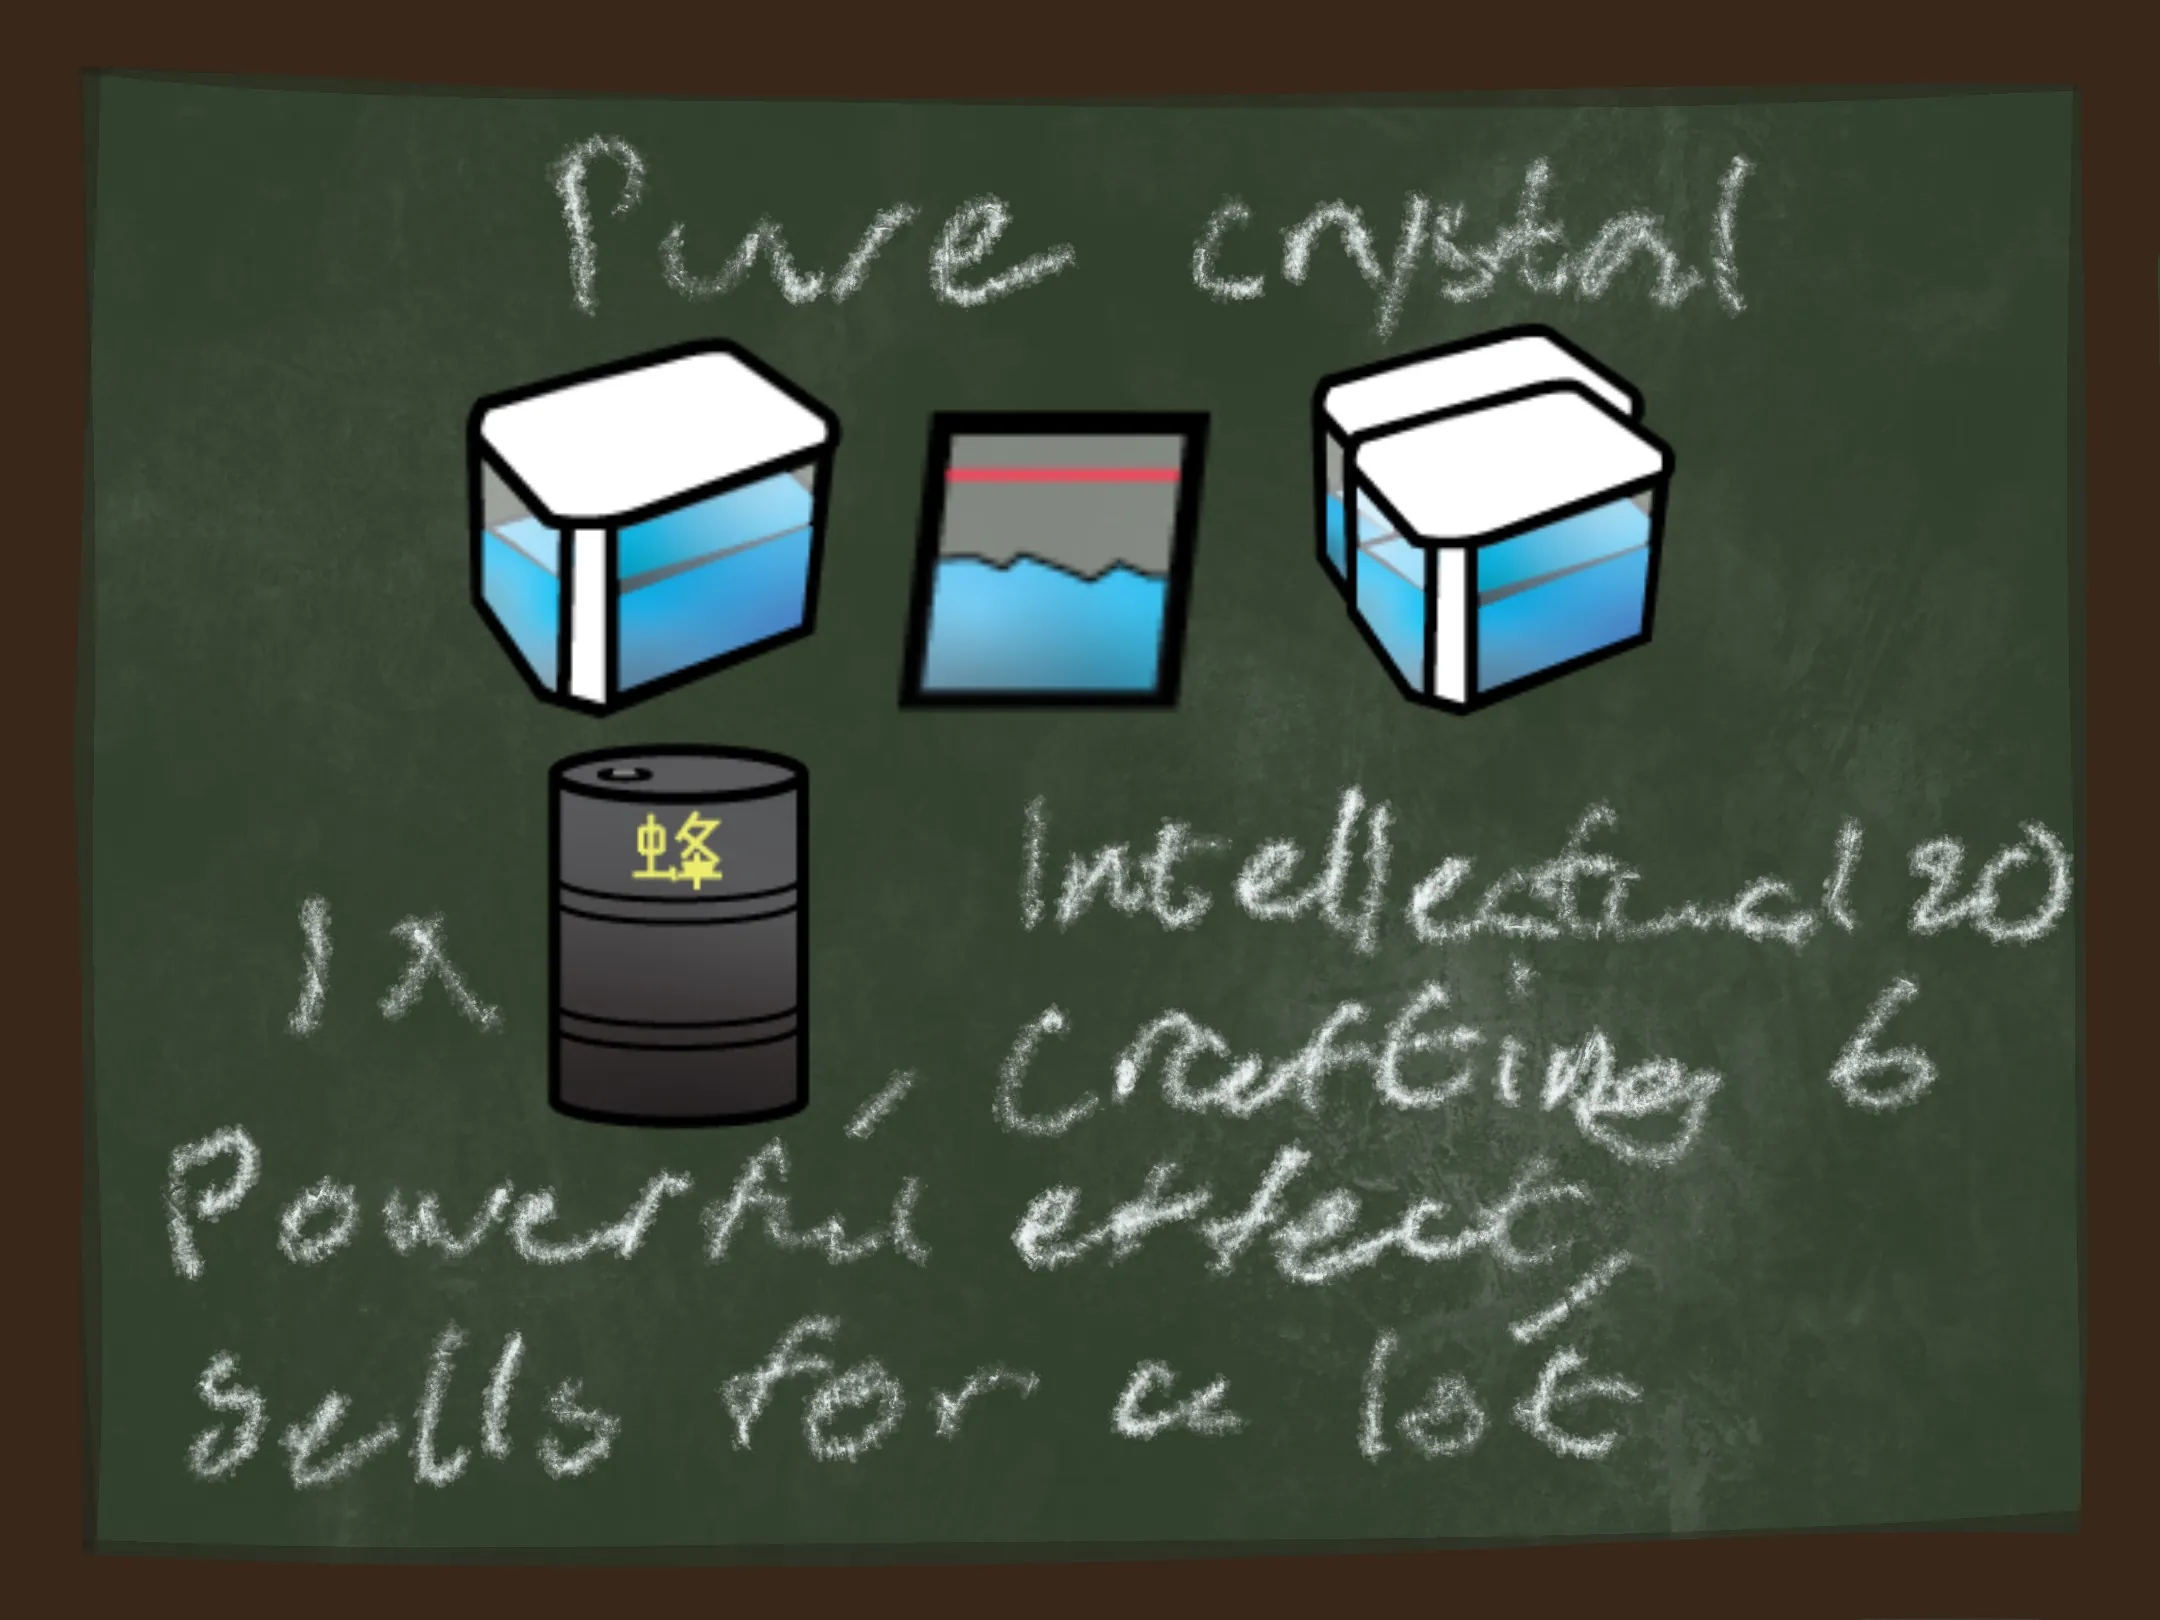 Pure crystal
蜂
1x
Intellectual 20
Crafting 6
Powerful effect,
sells for a lot